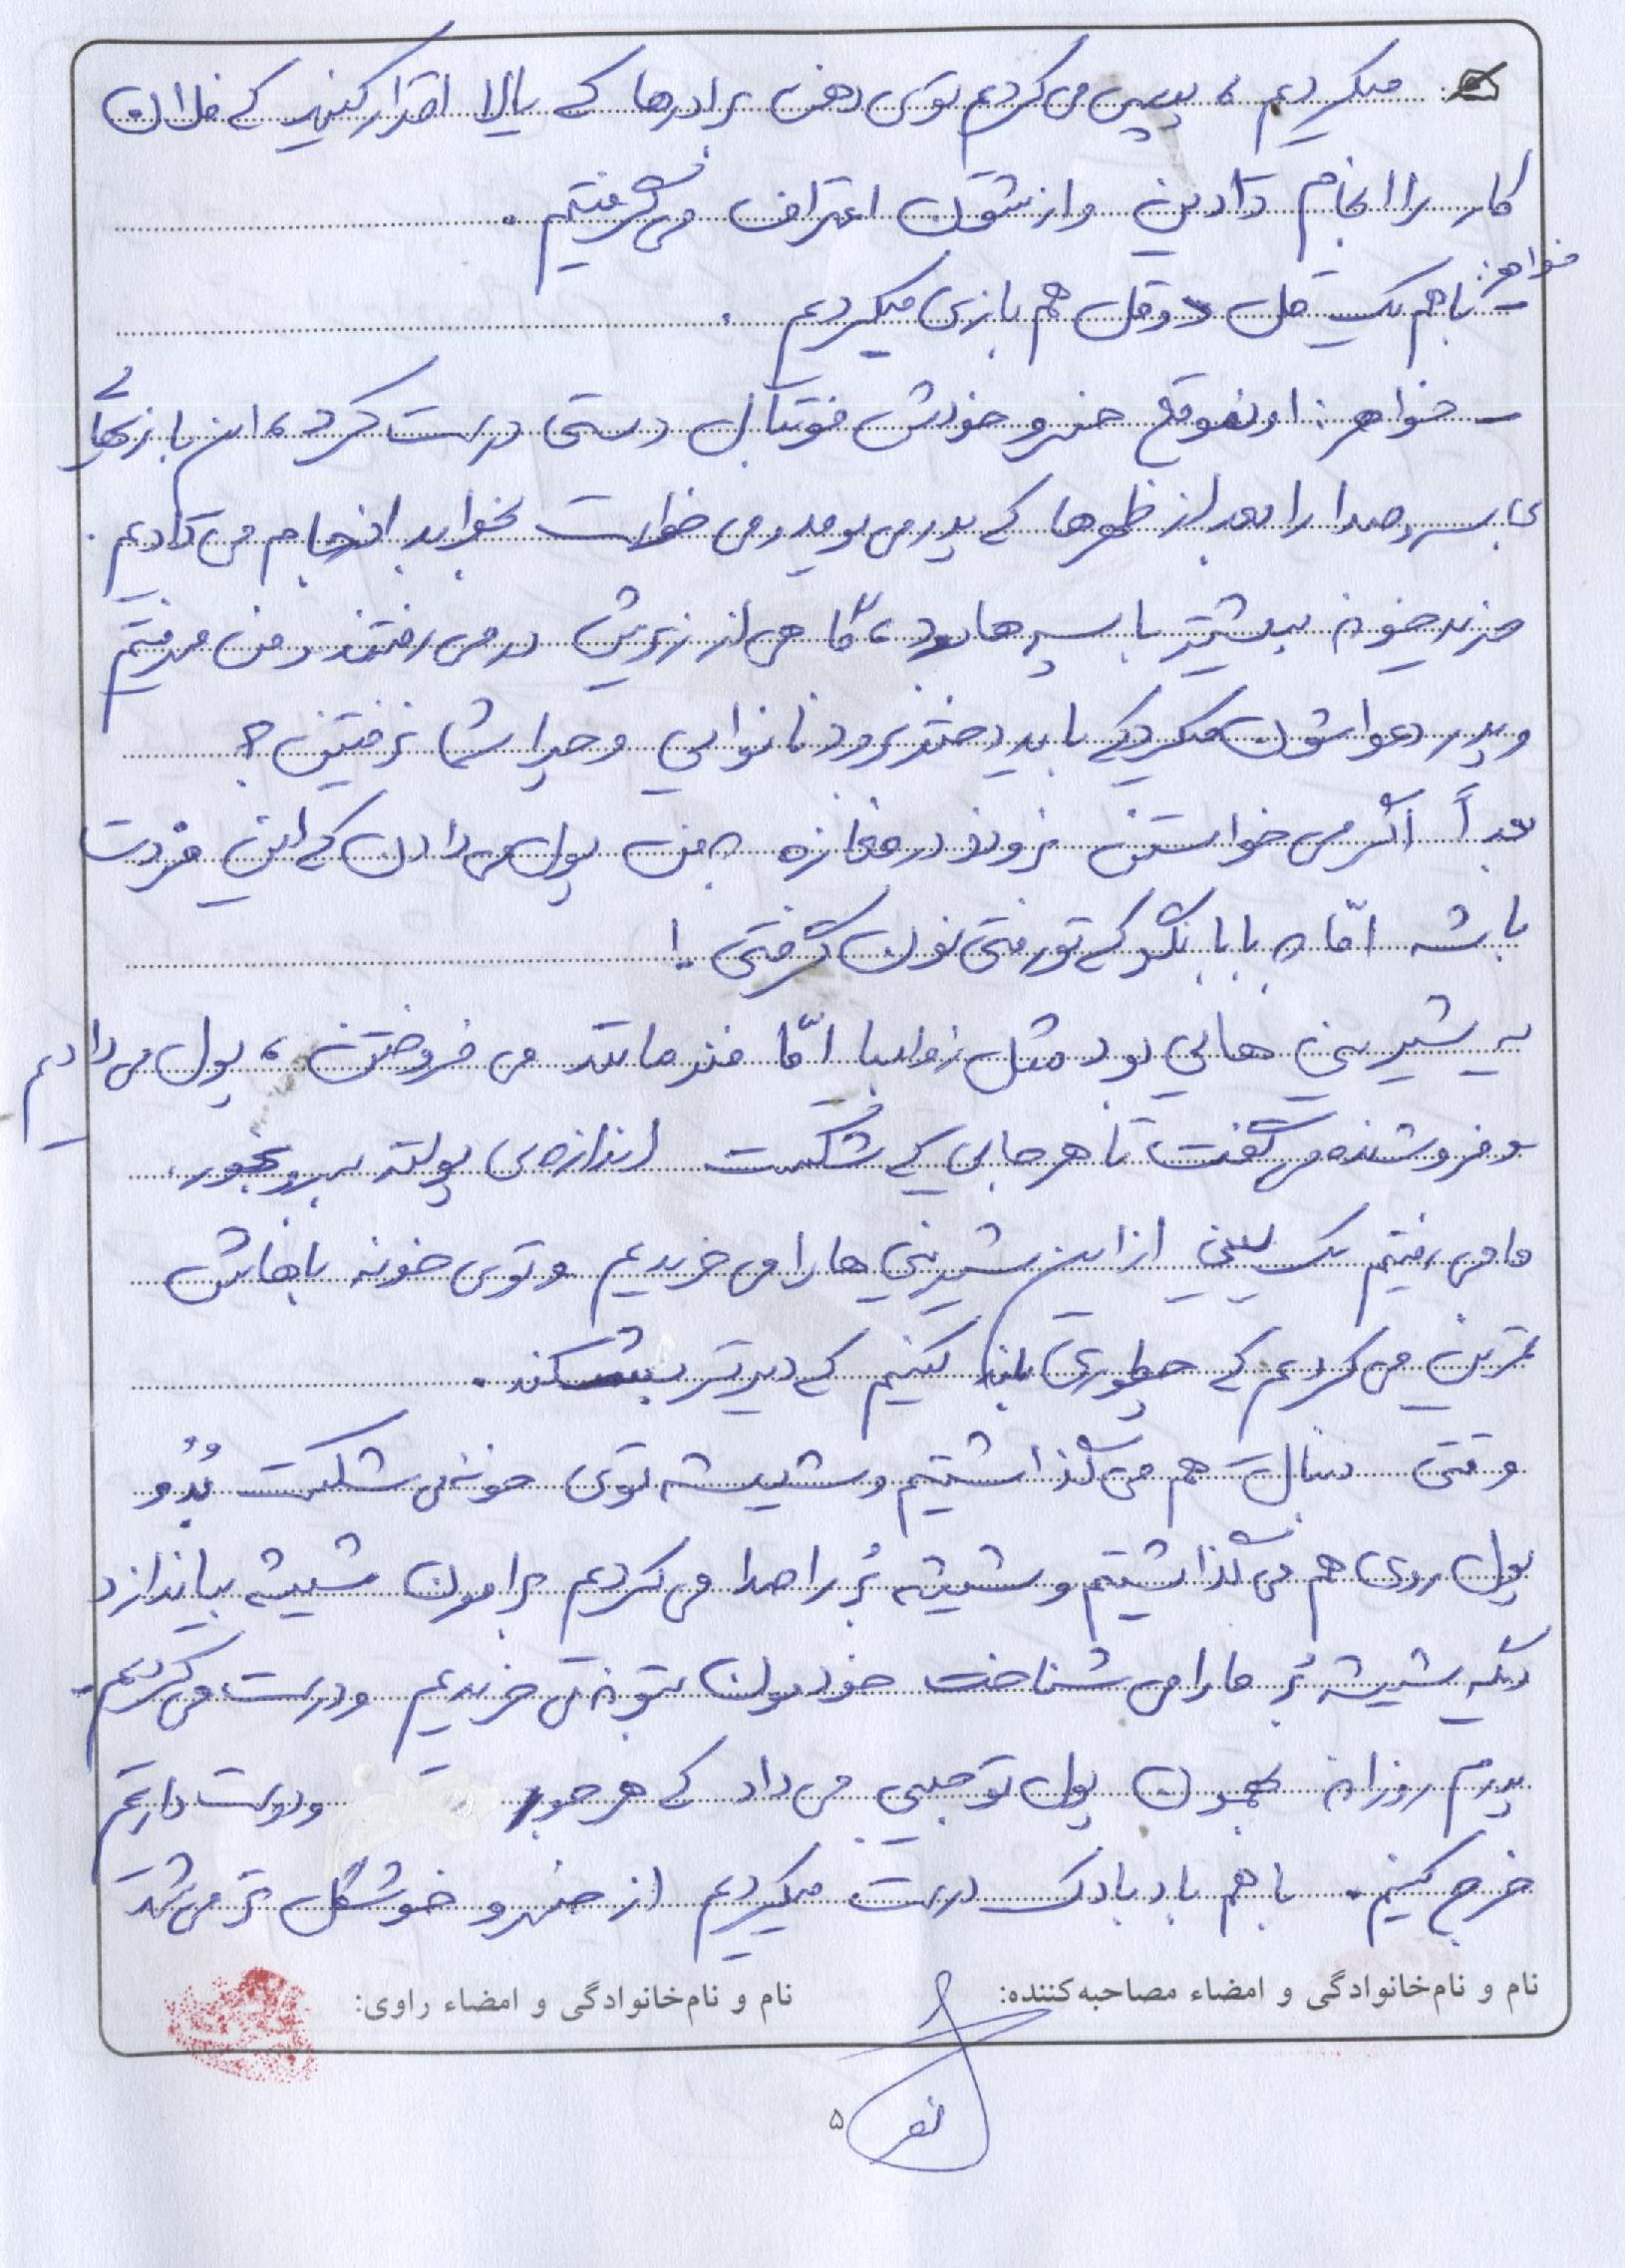 میکردیم، سپس می‌کردیم توی دهن برادرها که یالا اقرار کنید که فلان
کار را انجام دادین و ازشون اعتراف می‌گرفتیم.
خواهر:
- با هم یک قل دو قل هم بازی میکردیم.
- خواهر: اونموقع خسرو خودش فوتبال دستی درست کرد، این بازیهای
بی سر و صدا را بعد از ظهرها که پدر می‌یومد می‌خواست بخوابد انجام می‌دادیم.
خرید خونه بیشتر با پسرها بود، گاهی از زیرش در می‌رفتند و من میرفتم
و پدر دعواشون میکرد که باید دختر برود نانوایی و چرا شما نرفتین؟
بعداً اگر می‌خواستن نروند در مغازه به من پول می‌دادن که این مزدت
باشه امّا به بابا نگو که تو رفتی نون گرفتی!
یه شیرینی هایی بود مثل زولبیا امّا فنر مانند می فروختن، پول می‌دادیم
و فروشنده می‌گفت تا هر جایی که شکست اندازه‌ی پولته ببر و بخور.
ما می رفتیم یک سینی از این شیرینی ها را می خریدیم و توی خونه باهاش
تمرین می کردیم که چطوری بلند کنیم که دیرتر بشکند.
وقتی دنبال هم می‌گذاشتیم و شیشه توی خونه می شکست بُدُو
پول روی هم می گذاشتیم و شیشه بُر را صدا می کردیم برامون شیشه بیاندازد
دیگه شیشه بُر ما را می شناخت خودمون بتونه می خریدیم و درست می کردیم.
پدرم روزانه بهمون پول تو جیبی می داد که هر جور دوست داریم
خرج کنیم. با هم بادبادک درست میکردیم از خسرو خوشگل تر می‌شد
نام و نام‌خانوادگی و امضاء مصاحبه‌کننده:
نام و نام‌خانوادگی و امضاء راوی:
۵